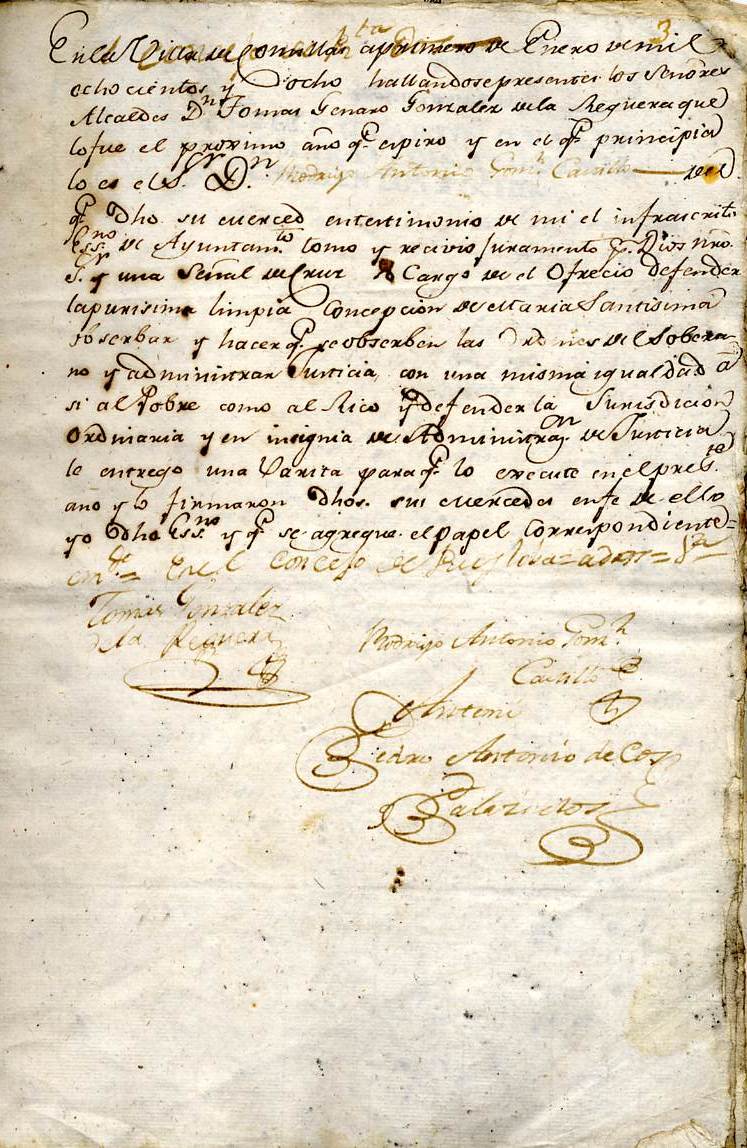 3
En la Villa de Comillas a primero de Enero de mil
ochocientos y ocho hallandose presentes los Señores
Alcaldes Dn Tomas Genaro Gonzalez de la Reguera que
lo fue el proximo año qe espiro y en el qe principia
lo es el Sr Dn Rodrigo Antonio Gomz Cavillo
qe dho su merced en testimonio de mi el infrascrito
Essno de Ayuntamto tomo y recivio juramento pr Dios nro
Sr y una Señal de Cruz Cargo de el Ofrecio defender
la purisima limpia Concepcion de Maria Santisima
obserbar y hacer qe se obserben las Ordnes del Sobera-
no y administrar Justicia, con una misma igualdad a
si al Pobre como al Rico y defender la Jurisdicion
Ordinaria y en insignia de Administraon de Justicia
le entrego una Varita para qe lo execute en el preste
año y lo firmaron dhos. sus mercedes en fe de ello
yo dho Essno y qe se agregue el papel Correspondiente=
en el Concejo de Ruyloba=
Tomas Gonzalez
de la Reguera
Rodrigo Antonio Gomz
Cavillo
Antemi
Pedro Antonio de Cos
Palazuelos